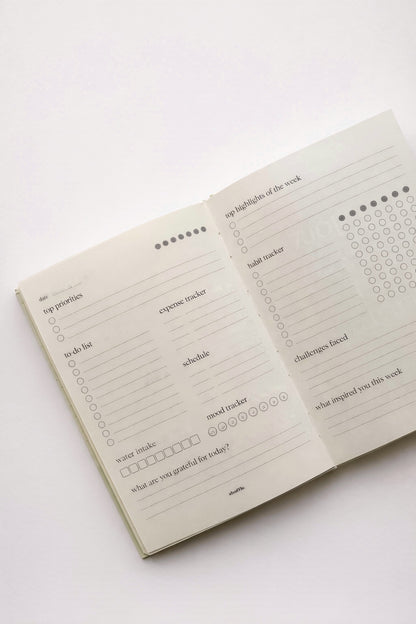 date
top priorities
expense tracker
to-do list
schedule
water intake
mood tracker
what are you grateful for today?
top highlights of the week
habit tracker
challenges faced
what inspired you this week